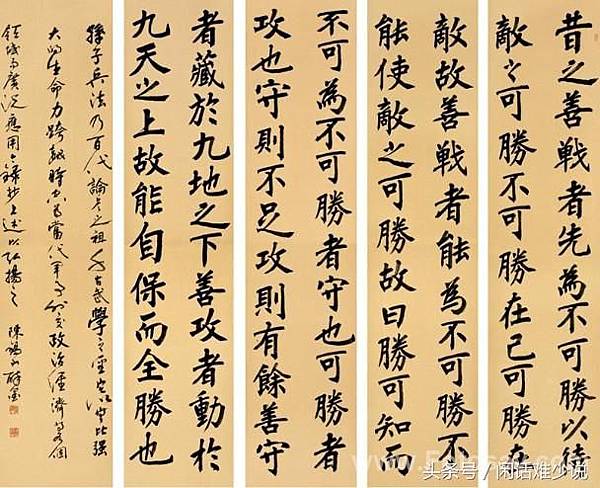 昔之善戦者先為不可勝以待
敵之可勝不可勝在己可勝在
敵故善戦者能為不可勝不
能使敵之可勝故曰勝可知而
不可為不可勝者守也可勝者
攻也守則不足攻則有餘善守
者藏於九地之下善攻者動於
九天之上故能自保而全勝也
孫子兵法乃百代論兵之祖千古武學之聖典以其比强
大的生命力跨越時空為當代軍事外交政治經濟各個
領域廣泛應用錄抄上述以弘揚之 陳錫山
头条号 / 闲话难少说